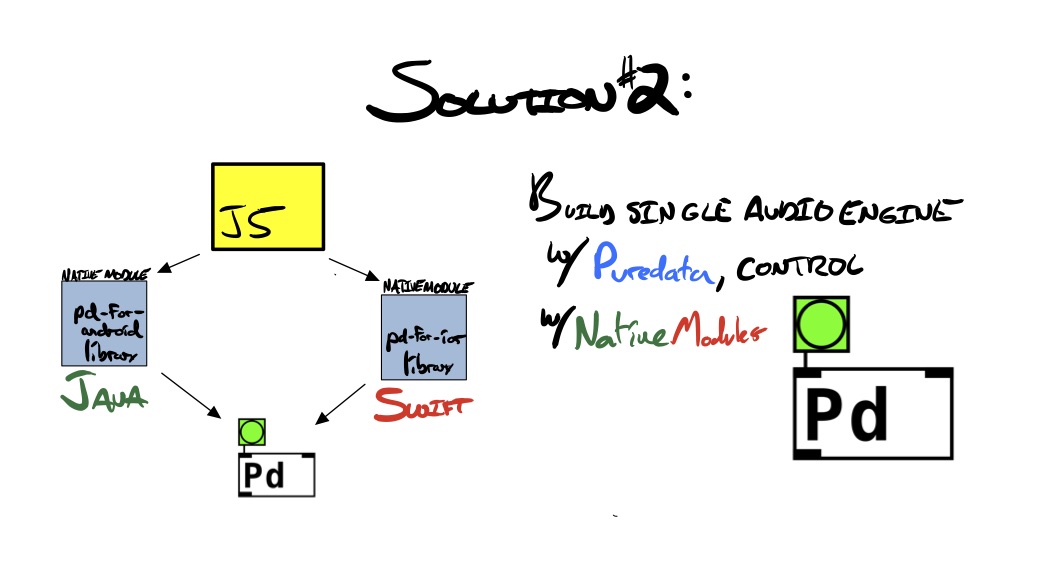 SOLUTION #2:
JS
NATIVE MODULE
pd-for-
android
library
JAVA
NATIVE MODULE
pd-for-ios
library
SWIFT
Pd
BUILD SINGLE AUDIO ENGINE
w/ Puredata, CONTROL
w/ Native Modules
Pd